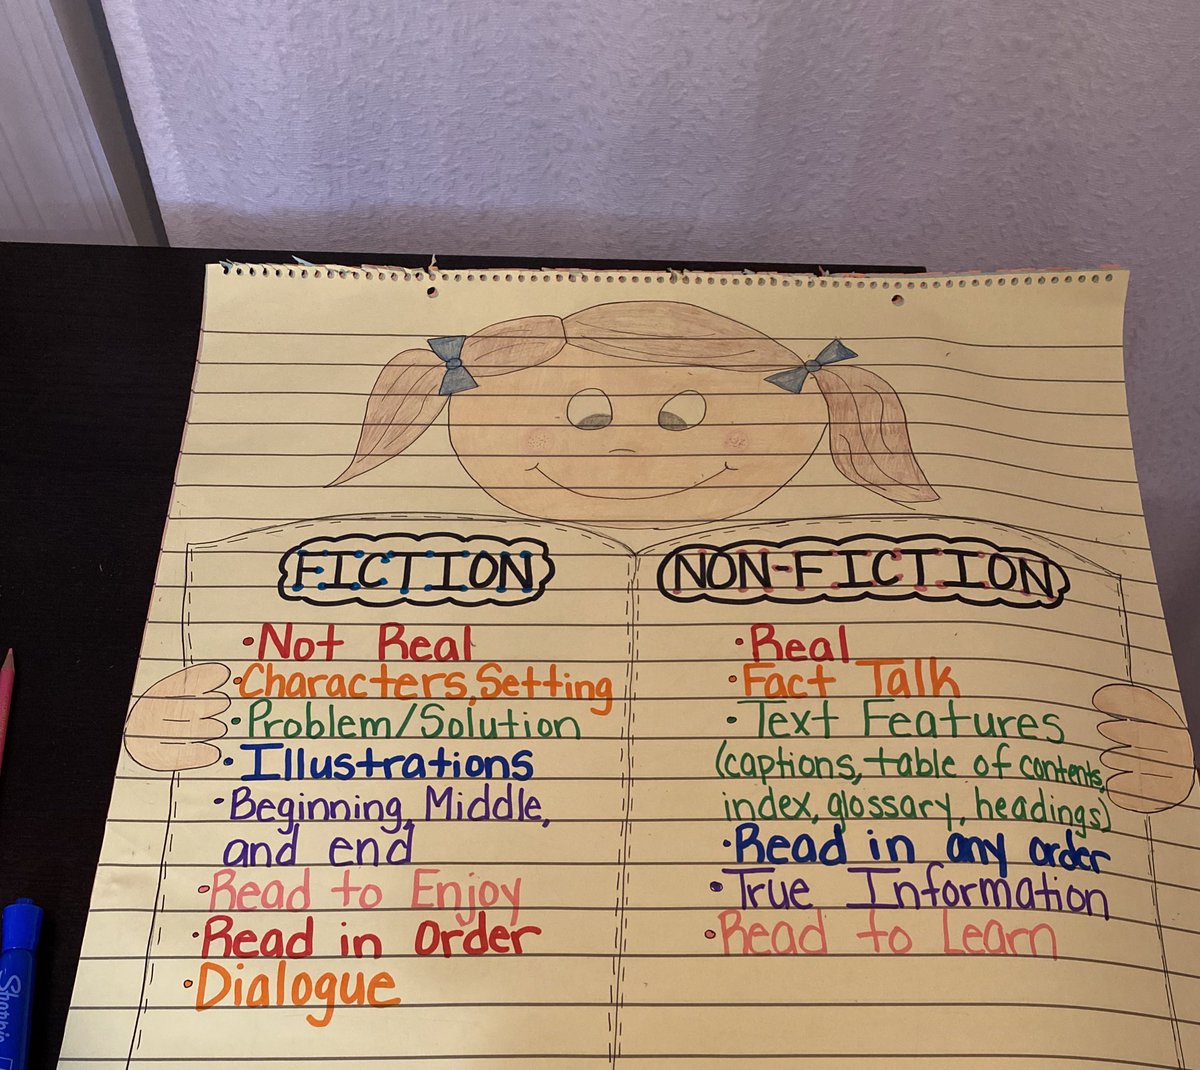 FICTION
•Not Real
•Characters, Setting
•Problem/Solution
•Illustrations
•Beginning, Middle,
and end
•Read to Enjoy
•Read in Order
•Dialogue
NON-FICTION
•Real
•Fact Talk
•Text Features
(captions, table of contents,
index, glossary, headings)
•Read in any order
•True Information
•Read to Learn
Sharpie